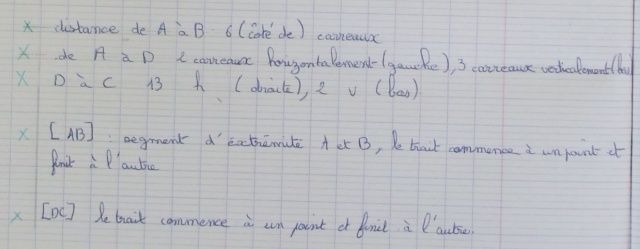 x distance de A à B . 6 (côté de) carreaux
x de A à D 2 carreaux horizontalement (gauche), 3 carreaux verticalement (bas)
x D à C 13 h (droite), 2 v (bas).
x [AB] : segment d'extrémité A et B, le trait commence à un point et
finit à l'autre
x [DC] le trait commence à un point et finit à l'autre.